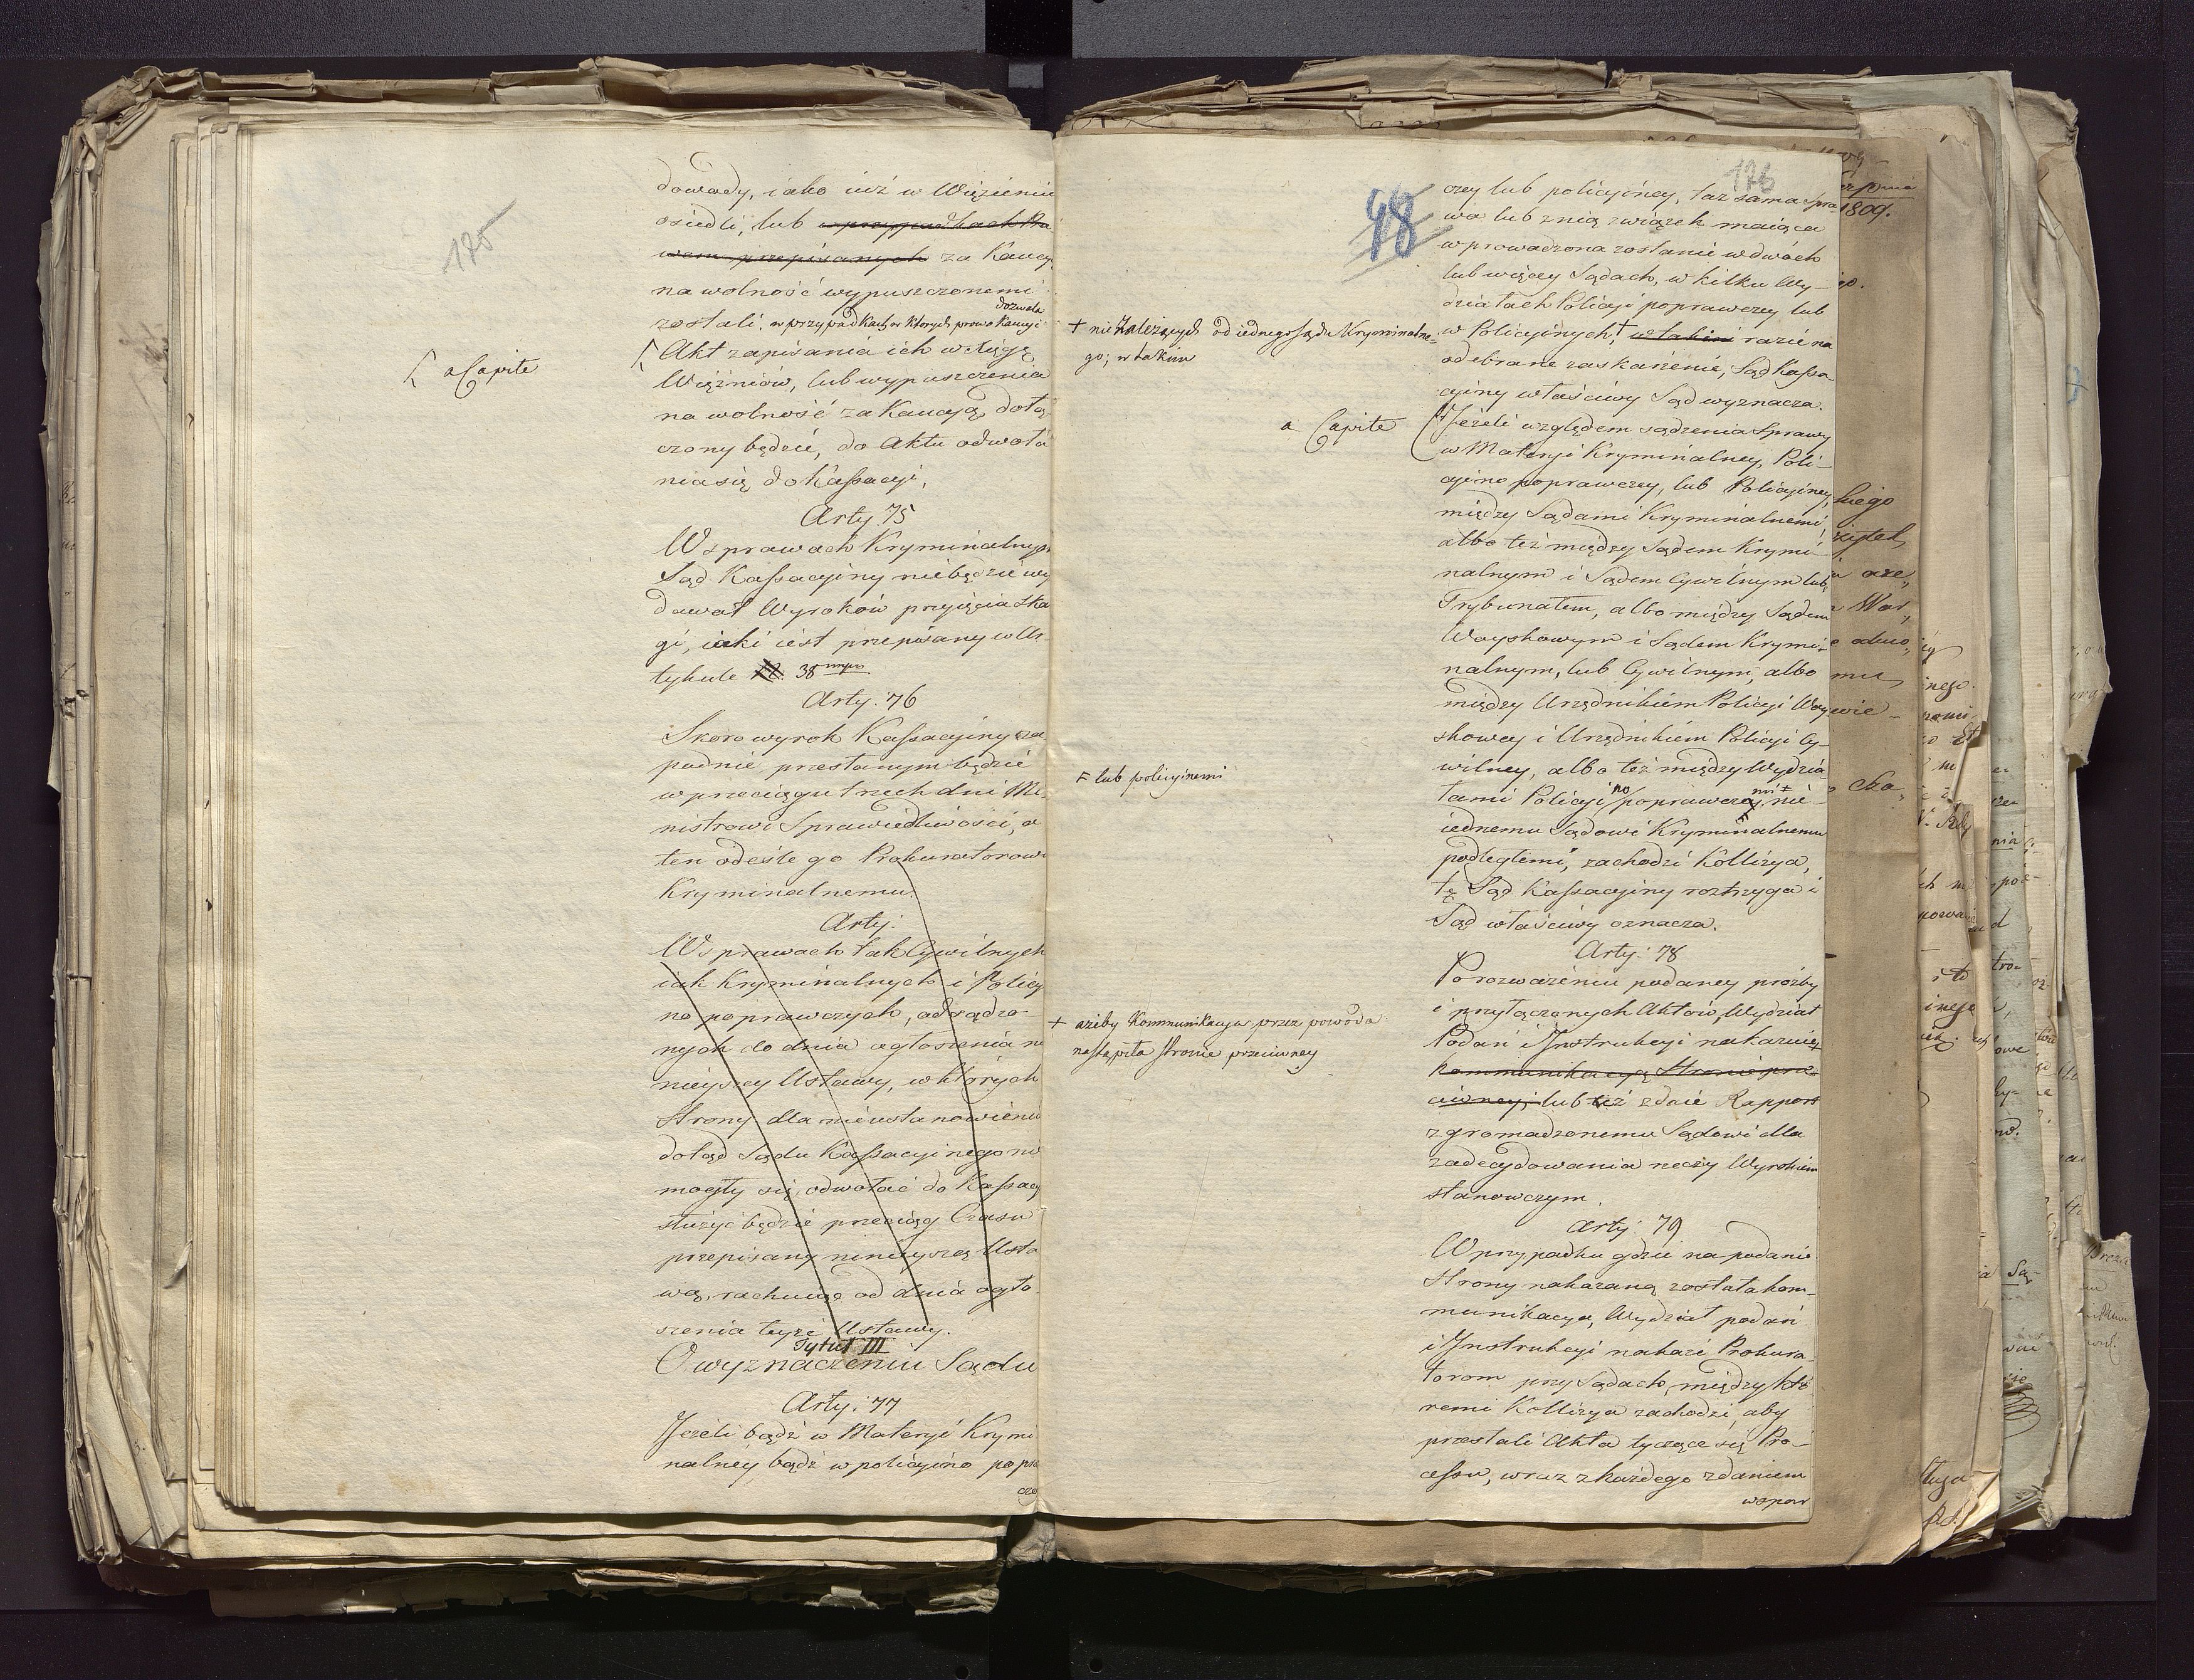 175
dowody, iako iuż w Więzieniu
osiedli, lub w przypadkach Pra
wem przepisanych za Kaucy
na wolność wypuszczonemi
dozwala
zostali, w przypadkach w ktorych prawo Kaucyi
a Capite
Akt zapisania ich w Xięgę
Więźniów, lub wypuszczenia
na wolność za Kaucyą, dołą
czony będzie, do Aktu odwoła
nia się do Kassacyi,
Arty. 75
W sprawach Kryminalnych
Sąd Kassacyiny niebędzie wy
dawał Wyroków przyięcia Ska
gi, iaki iest przepisany w Ar
tykule 38mym
Arty. 76
Skoro wyrok Kassacyiny za
padnie przesłanym będzie
w przeciągu trzech dni Mi
nistrowi Sprawiedliwości, a
ten odeśle go Prokuratorowi
Kryminalnemu.
Arty.
W sprawach tak Cywilnych
iak Kryminalnych i Policy
no poprawczych, odsądzo
nych do dnia ogłoszenia ni
nieyszey Ustawy, w których
Strony dla nieustanowienia
dotąd Sądu Kassacyinego nie
mogły się odwołać do Kassacy
służyć będzie przeciąg Czasu
przepisany ninieyszą Usta
wą, rachuiąc od dnia ogło
szenia teyże Ustawy.
Tytuł III
O wyznaczeniu Sądu
Arty. 77
Jeżeli bądź w Materyi Krymi
nalney bądź w policyino popra
cze
176
48
czey lub policyiney, taż sama spra
wa lub z nią związek maiąca
wprowadzona zostanie w dwóch
lub więcey Sądach, w kilku Wy-
działach Policyi poprawczey lub
+ nie Zależących od iednego Sądu Kryminalne-
go; w takim
w Policyinych, + w takim razie na
odebrane zaskarżenie, Sąd Kassa
cyiny właściwy Sąd wyznacza.
a Capite
Jeżeli względem sądzenia Sprawy
w Materyi Kryminalney, Poli-
cyino poprawczey, lub Policyiney,
między Sądami Kryminalnemi,
albo też między Sądem Krymi-
nalnym i Sądem Cywilnym lub
Trybunałem, albo między Sądem
Woyskowym i Sądem Krymi-
nalnym, lub Cywilnym, albo
między Urzędnikiem Policyi Woy
skowey i Urzędnikiem Policyi Cy-
wilney, albo też między Wydzia
+ lub policyinemi
łami Policyi no poprawczey mi + nie-
iednemu Sądowi Kryminalnemu
podległemi, zachodzi Kollizya,
tę Sąd Kassacyiny roztrzyga i
Sąd właściwy oznacza.
Arty. 78
Po rozważeniu podaney prozby
i przyłączonych Aktów, Wydział
+ ażeby Kommunikacya przez powoda
nastąpiła stronie przeciwney
Podań i Instrukcyi nakazuie +
Kommunikacyą Stronie prze-
ciwney, lub też zdaie Rapport
zgromadzonemu Sądowi dla
zadecydowania rzeczy Wyrokiem
stanowczym.
Arty. 79
W przypadku gdzie na podanie
Strony nakazaną została kom-
munikacya, Wydział podań
i Instrukcyi nakaże Prokura
torom przy Sądach, między któ
remi Kollizya zachodzi, aby
przesłali Akta tyczące się Pro-
cessu, wraz z każdego zdaniem
wspar
1809.